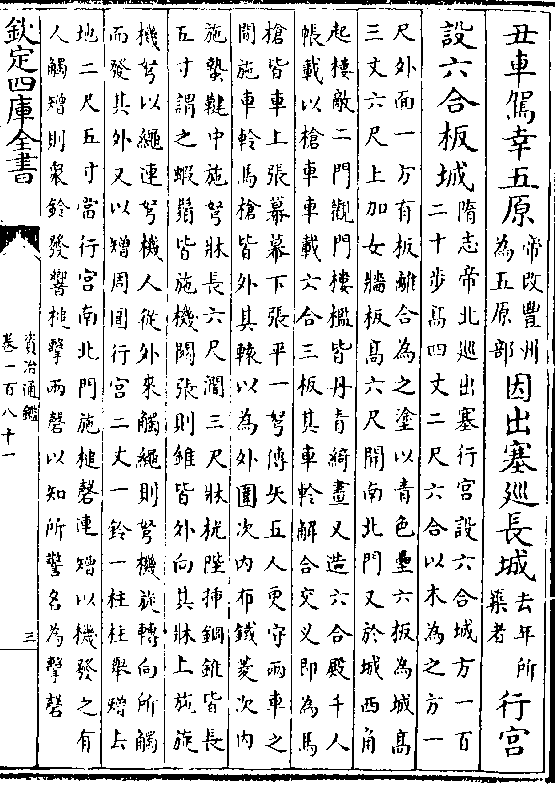 丑車駕幸五原帝改豐州為五原郡因出塞巡長城去年所築者行宮
設六合板城隋志帝北巡出塞行宮設六合城方一百
二十步高四丈二尺六合以木為之方一
尺外面一方有板離合為之塗以青色壘六板為城高
三丈六尺上加女牆板高六尺開南北門又於城西角
起樓敵二門觀門樓檻皆丹青綺畫又造六合殿千人
帳載以槍車車載六合三板其車軨解合交叉即為馬
槍皆車上張幕幕下張平一弩傅矢五人更守兩車之
間施車軨馬槍皆外其轅以為外圍次内布鐵菱次内
施蟄鞬中施弩牀長六尺濶三尺牀桄陛揷鋼錐皆長
五寸謂之蝦鬚皆施機關張則錐皆外向其牀上施旋
機弩以繩連弩機人從外來觸繩則弩機旋轉向所觸
而發其外又以矰周圍行宮二丈一鈴一柱柱舉矰去
地二尺五寸當行宮南北門施槌磬連矰以機發之有
人觸矰則衆鈴發響槌擊兩磬以知所警名為擊磬
欽定四庫全書
資治通鑑
卷一百八十一
三